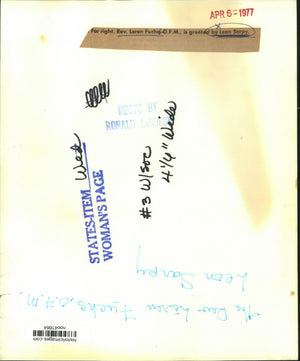 APR 6-1977
Far right, Rev. Loren Fuchs, O.F.M., is greeted by Leon Sarpy.
PHOTO BY
RONALD
STATES-ITEM
WOMAN'S PAGE
Wed
#3 W/soc
4 1/4" Wide
Leon Sarpy
The Rev Loren Fuchs, O.F.M.
historicimages.com